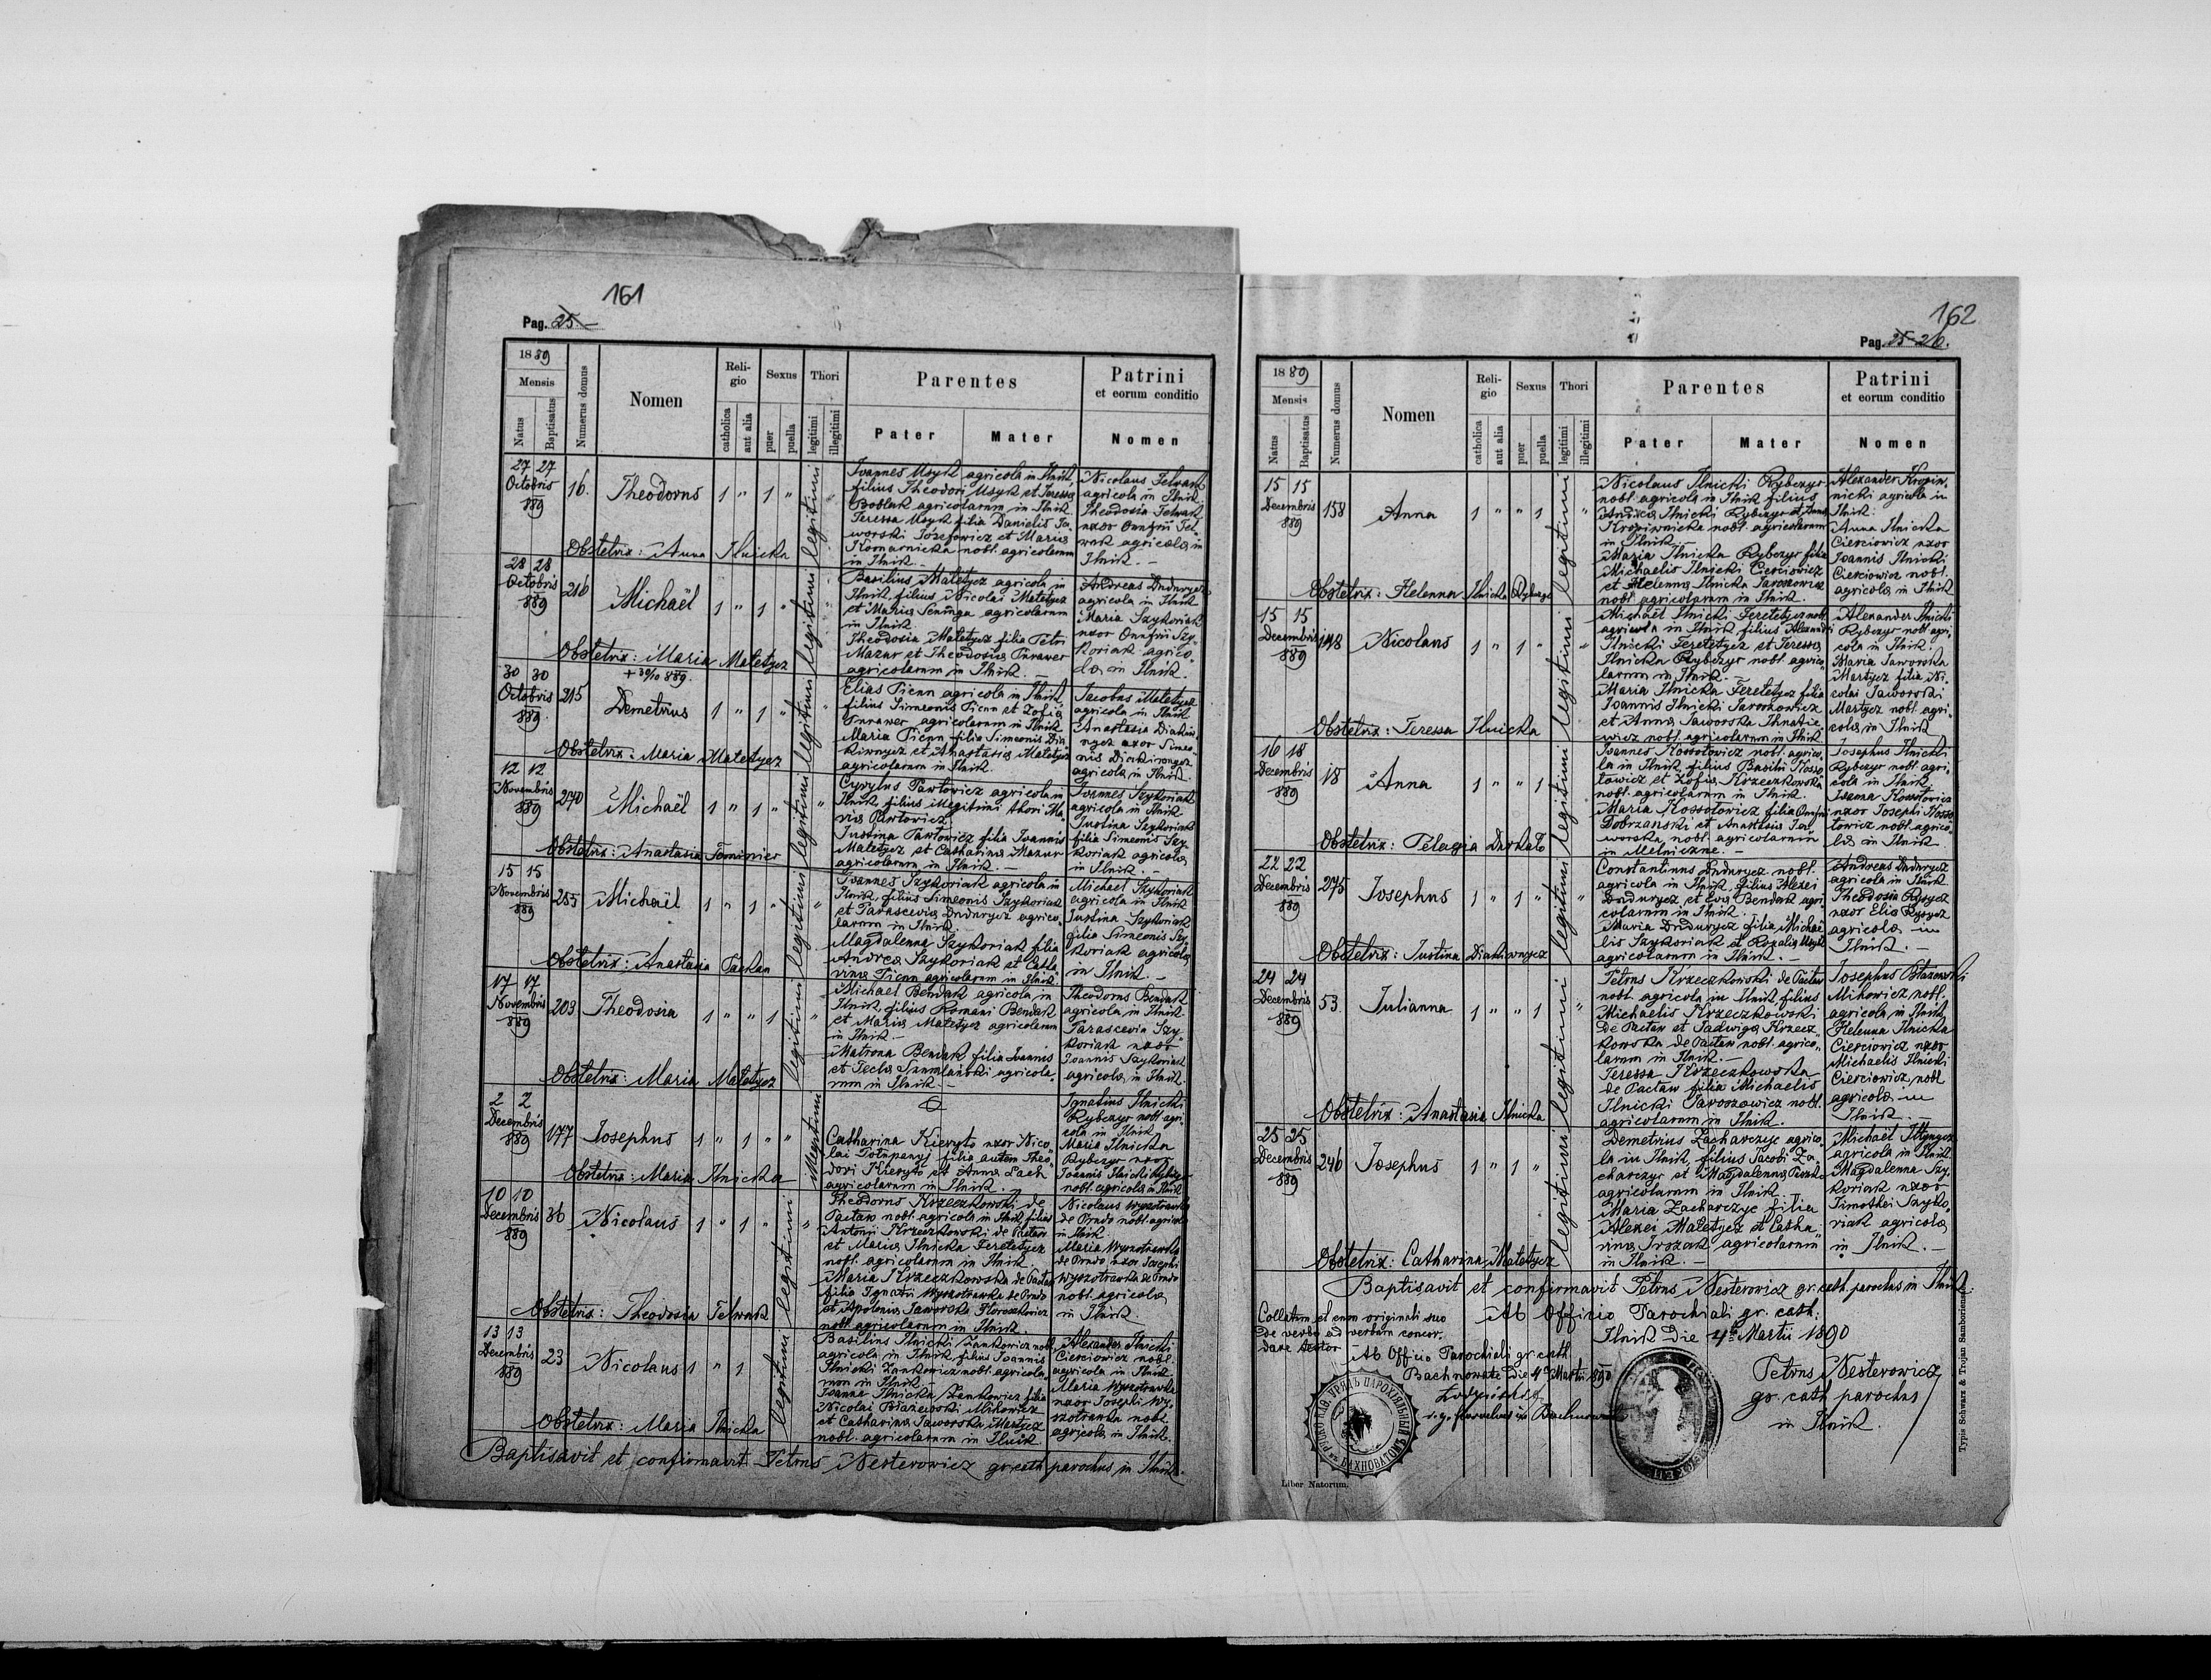 161
Pag. 25.
1889
Mensis
Natus
Baptisatus
Numerus domus
Nomen
Reli-
gio
catholica
aut alia
Sexus
puer
puella
Thori
legitimi
illegitimi
Parentes
Pater Mater
Patrini
et eorum conditio
Nomen
27 27
Octobris
889
16.
Theodorus
1 " 1 "
legitimi
Joannes Usyk agricola in Ilnik,
filius Theodori Usyk et Teressa
agricolarum in Ilnik.
Teressa Usyk filia Danielis Ja-
worski Józefowicz et Maria
Komarnicka nobl. agricolarum
in Ilnik.
Nicolaus Telwak
agricola in Ilnik.
Theodosia Telwak
uxor Onufrii Tel-
wak agricola in
Ilnik. -
Obstetrix: Anna Ilnicka
28 28
Octobris
889
216
Michaël
1 " 1 "
legitimi
Basilius Matetycz agricola in
Ilnik, filius Nicolai Matetycz
et Maria agricolarum
in Ilnik
Theodosia Matetycz filia Petri
Mazur et Theodosia
agricolarum in Ilnik. -
Andreas Dndurycz
agricola in Ilnik
Maria Szykoriak
uxor Onufrii Szy-
koriak agrico-
la in Ilnik.
Obstetrix: Maria Matetycz
30 30
Octobris
889
215
+ 30/10 889.
Demetrius
1 " 1 "
legitimi
Elias Picun agricola in Ilnik
filius Simeonis Picun et Zofia
agricolarum in Ilnik
Maria Picun filia Simeonis Dia-
kiwnycz et Anastasia Matetycz
agricolarum in Ilnik.
Jacobus Matetycz
agricola in Ilnik
Anastasia Diakiw-
nycz uxor Simeo-
nis Diakiwnycz
agricola in Ilnik.
Obstetrix: Maria Matetycz
12 12
Novembris
889
270
Michaël
1 " 1 "
legitimi
Cyrylus Pawłowicz agricola in
Ilnik, filius illegitimi thori Ma-
ria Pawłowicz
Justina Pawłowicz filia Joannis
Matetycz et Catharina Mazur
agricolarum in Ilnik. -
Joannes Szykoriak
agricola in Ilnik
Justina Szykoriak
filia Simeonis Szy-
koriak agricola
in Ilnik. -
Obstetrix: Anastasia
15 15
Novembris
889
255
Michaël
1 " 1 "
legitimi
Joannes Szykoriak agricola in
Ilnik, filius Simeonis Szykoriak
et Parascevia Dndurycz agrico-
larum in Ilnik
Magdalenna Szykoriak filia
Andrea Szykoriak et Catha-
rina Picun agricolarum in Ilnik.
Michael Szykoriak
agricola in Ilnik
Justina Szykoriak
filia Simeonis Szy-
koriak agricola
in Ilnik. -
Obstetrix: Anastasia
17 17
Novembris
889
203
Theodosia
1 " " 1
legitimi
Michael Bendak agricola in
Ilnik, filius Romani Bendak
et Maria Matetycz agricolarum
in Ilnik. -
Matrona Bendak filia Joannis
et Tecla agricola-
rum in Ilnik. -
Theodorus Bendak
agricola in Ilnik
Parascevia Szy-
koriak uxor
Joannis Szykoriak
agricola in Ilnik.
Obstetrix: Maria Matetycz
2 2
Decembris
889
177
Josephus
1 " 1 "
illegitimi
Catharina Kieryło uxor Nico-
lai filia autem Theo-
dori Kieryło et Anna Lach
agricolarum in Ilnik. -
Ignatius Ilnicki
Rybczyr nobl. agri-
cola in Ilnik
Maria Ilnicka
Rybczyr uxor
Joannis Ilnicki Rybczyr
nobl. agricola in Ilnik
Obstetrix: Maria Ilnicka
10 10
Decembris
889
36
Nicolaus
1 " 1 "
legitimi
Theodorus Krzeczkowski de
Pactaw nobl. agricola in Ilnik filius
Antonii Krzeczkowski de Pactaw
et Maria Ilnicka Feretetycz
nobl. agricolarum in Ilnik
Maria Krzeczkowska de Pactaw
filia Ignatii Wyszotrawka de Prado
et Apolonia Jaworska
nobl. agricolarum in Ilnik.
Nicolaus Wyszotrawka
de Prado nobl. agricola
in Ilnik
Maria Wyszotrawka
de Prado uxor Josephi
Wyszotrawka de Prado
nobl. agricola
in Ilnik.
Obstetrix: Theodosia Telwak
13 13
Decembris
889
23
Nicolaus
1 " 1
legitimi
Basilius Ilnicki Zankowicz nobl.
agricola in Ilnik, filius Joannis
Ilnicki Zankowicz nobl. agricola-
rum in Ilnik. -
Joanna Ilnicka Zankowicz filia
Nicolai Błażewski Mikowicz
et Catharina Jaworska Martycz
nobl. agricolarum in Ilnik
Alexander Ilnicki
Cierciowicz nobl.
agricola in Ilnik
Maria Wyszotrawka
uxor Josephi Wy-
szotrawka nobl.
agricola in Ilnik.
Obstetrix: Maria Ilnicka
Baptisavit et confirmavit Petrus Nesterowicz gr. cath. parochus in Ilnik.
162
Pag. 25 26.
1889
Mensis
Natus
Baptisatus
Numerus domus
Nomen
Reli-
gio
catholica
aut alia
Sexus
puer
puella
Thori
legitimi
illegitimi
Parentes
Pater Mater
Patrini
et eorum conditio
Nomen
15 15
Decembris
889
158
Anna
1 " " 1
legitimi
"
Nicolaus Ilnicki Rybczyr
nobl. agricola in Ilnik filius
Andrea Ilnicki Rybczyr et Anna
Kropiwnicka nobl. agricolarum
in Ilnik. -
Maria Ilnicka Rybczyr filia
Michaelis Ilnicki Cierciowicz
et Helenna Ilnicka Jaroszowicz
nobl. agricolarum in Ilnik.
Alexander Kropiw-
nicki agricola in
Ilnik.
Anna Ilnicka
Cierciowicz uxor
Joannis Ilnicki
Cierciowicz nobl.
agricola in Ilnik
Obstetrix: Helenna Ilnicka Rybczyr
15 15
Decembris
889
148
Nicolaus
1 " 1 "
legitimi
"
Michael Ilnicki Feretetycz nobl.
agricola in Ilnik filius Alexandri
Ilnicki Feretetycz et Teressa
Ilnicka Rybczyr nobl. agrico-
larum in Ilnik. -
Maria Ilnicka Feretetycz filia
Joannis Ilnicki Jaroszowicz
et Anna Jaworska Ihnatie-
wicz nobl. agricolarum in Ilnik
Alexander Ilnicki
Rybczyr nobl. agri-
cola in Ilnik.
Maria Jaworska
Martycz filia Ni-
colai Jaworski
Martycz nobl. agri-
cola in Ilnik
Obstetrix: Teressa Ilnicka
16 18
Decembris
889
18
Anna
1 " " 1
legitimi
Joannes Kossotowicz nobl. agrico-
la in Ilnik, filius Basilii Kosso-
towicz et Zofia Krzeczkowska
nobl. agricolarum in Ilnik.
Maria Kossotowicz filia Onufrii
Dobrzanski et Anastasia Ja-
worska nobl. agricolarum
in Melniczne. -
Josephus Ilnicki
Rybczyr nobl. agri-
cola in Ilnik
Joanna Kossotowicz
uxor Josephi Kosso-
towicz nobl. agrico-
la in Ilnik.
Obstetrix: Pelagia
22 22
Decembris
889
275
Josephus
1 " 1 "
legitimi
"
Constantinus Dndurycz nobl.
agricola in Ilnik, filius Alexei
Dndurycz et Eva Bendak agri-
colarum in Ilnik.
Maria Dndurycz filia Michae-
lis Szykoriak et Rozalia Usyk
agricolarum in Ilnik. -
Andreas Dndurycz
agricola in Ilnik
Theodosia Rysycz
uxor Elia Rysycz
agricola in
Ilnik. -
Obstetrix: Justina Diakiwnycz
24 24
Decembris
889
53
Julianna
1 " " 1
legitimi
"
Petrus Krzeczkowski de Pactaw
nobl. agricola in Ilnik, filius
Michaelis Krzeczkowski
de Pactaw et Jadwiga Krzecz-
kowska de Pactaw nobl. agrico-
larum in Ilnik. -
Teressa Krzeczkowska
de Pactaw filia Michaelis
Ilnicki Jaroszowicz nobl.
agricolarum in Ilnik.
Josephus Błażowski
Mikowicz nobl.
agricola in Ilnik
Helenna Ilnicka
Cierciowicz uxor
Michaelis Ilnicki
Cierciowicz nobl.
agricola in
Ilnik. -
Obstetrix: Anastasia Ilnicka
25 25
Decembris
889
246
Josephus
1 " 1 "
legitimi
Demetrius Zacharczyc agrico-
la in Ilnik, filius Jacobi Za-
charczyc et Magdalenna
agricolarum in Ilnik. -
Maria Zacharczyc filia
Alexei Matetycz et Catha-
rina agricolarum
in Ilnik. -
Michaël
agricola in Ilnik.
Magdalenna Szy-
koriak uxor
Timothei Szyko-
riak agricola
in Ilnik. -
Obstetrix: Catharina Matetycz
Baptisavit et confirmavit Petrus Nesterowicz gr. cath. parochus in Ilnik.
Ab Officio Parochiali gr. cath.
Ilnik die 4 Martii 1890
Petrus Nesterowicz
gr. cath. parochus
in Ilnik.
Collatum et cum originali suo
de verbo ad verbum concor-
dare testor
Ab Officio Parochiali gr. cath.
Bachnowate die 4 Martii 890
Liber Natorum.
Typis Schwarz & Trojan Samboriensis.